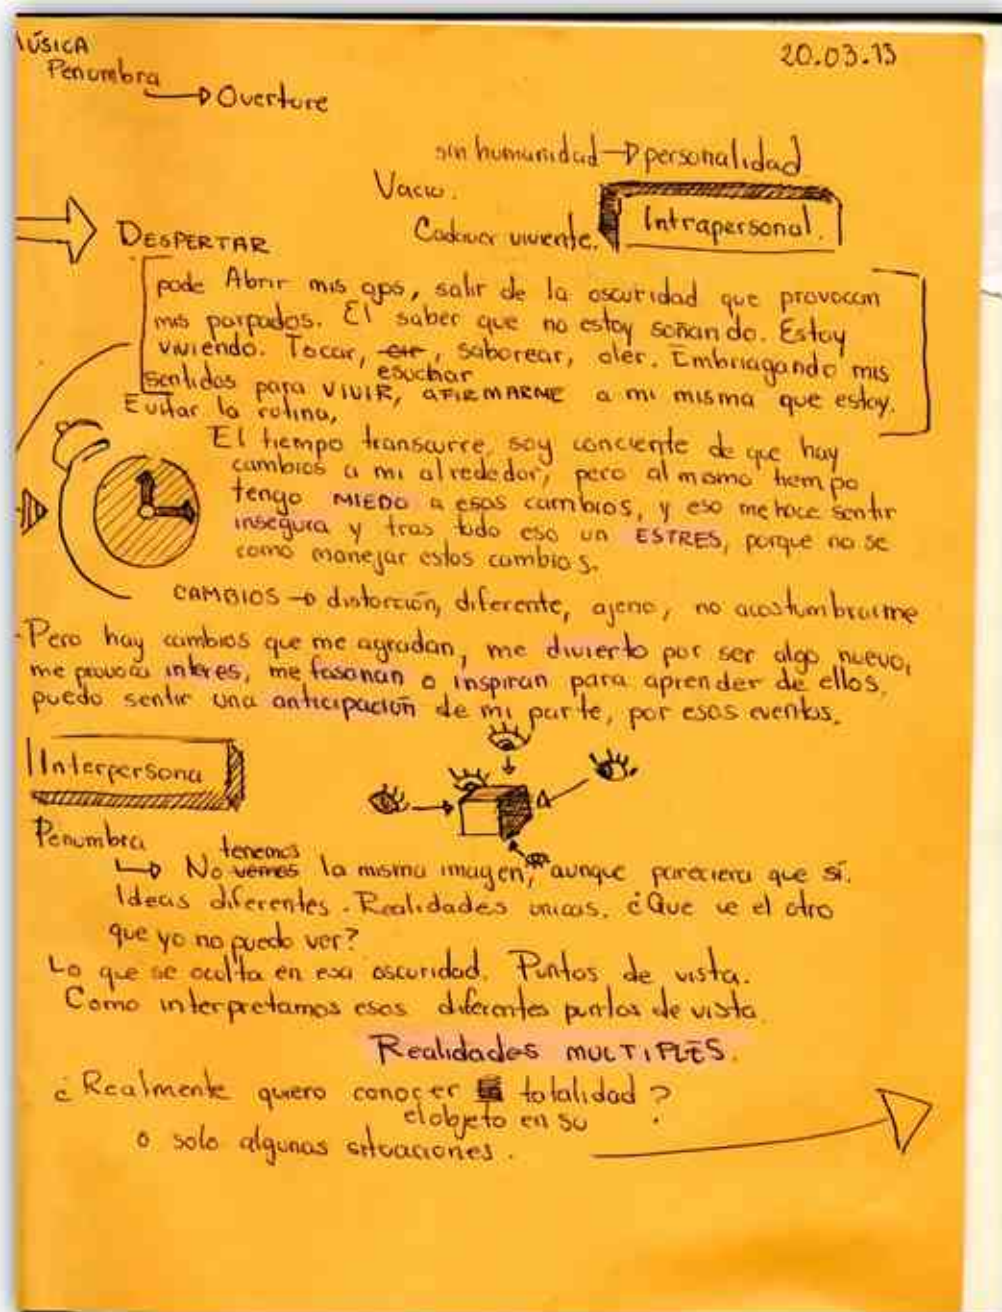 MÚSICA
20.03.13
Penumbra
→ Overture
sin humanidad → personalidad
Vacio.
Cadaver viviente.
Intrapersonal.
DESPERTAR
pode Abrir mis ojos, salir de la oscuridad que provocan
mis parpados. El saber que no estoy soñando. Estoy
viviendo. Tocar, oir, saborear, oler. Embriagando mis
esuchar
sentidos para VIVIR, AFIRMARME a mi misma que estoy.
Evitar la rutina,
El tiempo transcurre, soy conciente de que hay
cambios a mi alrededor, pero al mismo tiempo
tengo MIEDO a esos cambios, y eso me hace sentir
insegura y tras todo eso un ESTRES, porque no se
como manejar estos cambios.
CAMBIOS → distorción, diferente, ajeno, no acostumbrarme
-Pero hay cambios que me agradan, me divierto por ser algo nuevo,
me provoca interes, me fasinan o inspiran para aprender de ellos,
puedo sentir una anticipación de mi parte, por esos eventos.
Interpersona
Penumbra
tenemos
→ No vemos la misma imagen, aunque pareciera que sí.
Ideas diferentes. Realidades unicas. ¿Que ve el otro
que yo no puedo ver?
Lo que se oculta en esa oscuridad. Puntos de vista.
Como interpretamos esos diferentes puntos de vista.
Realidades MULTIPLES.
¿Realmente quiero conocer totalidad?
el objeto en su
o solo algunas situaciones.